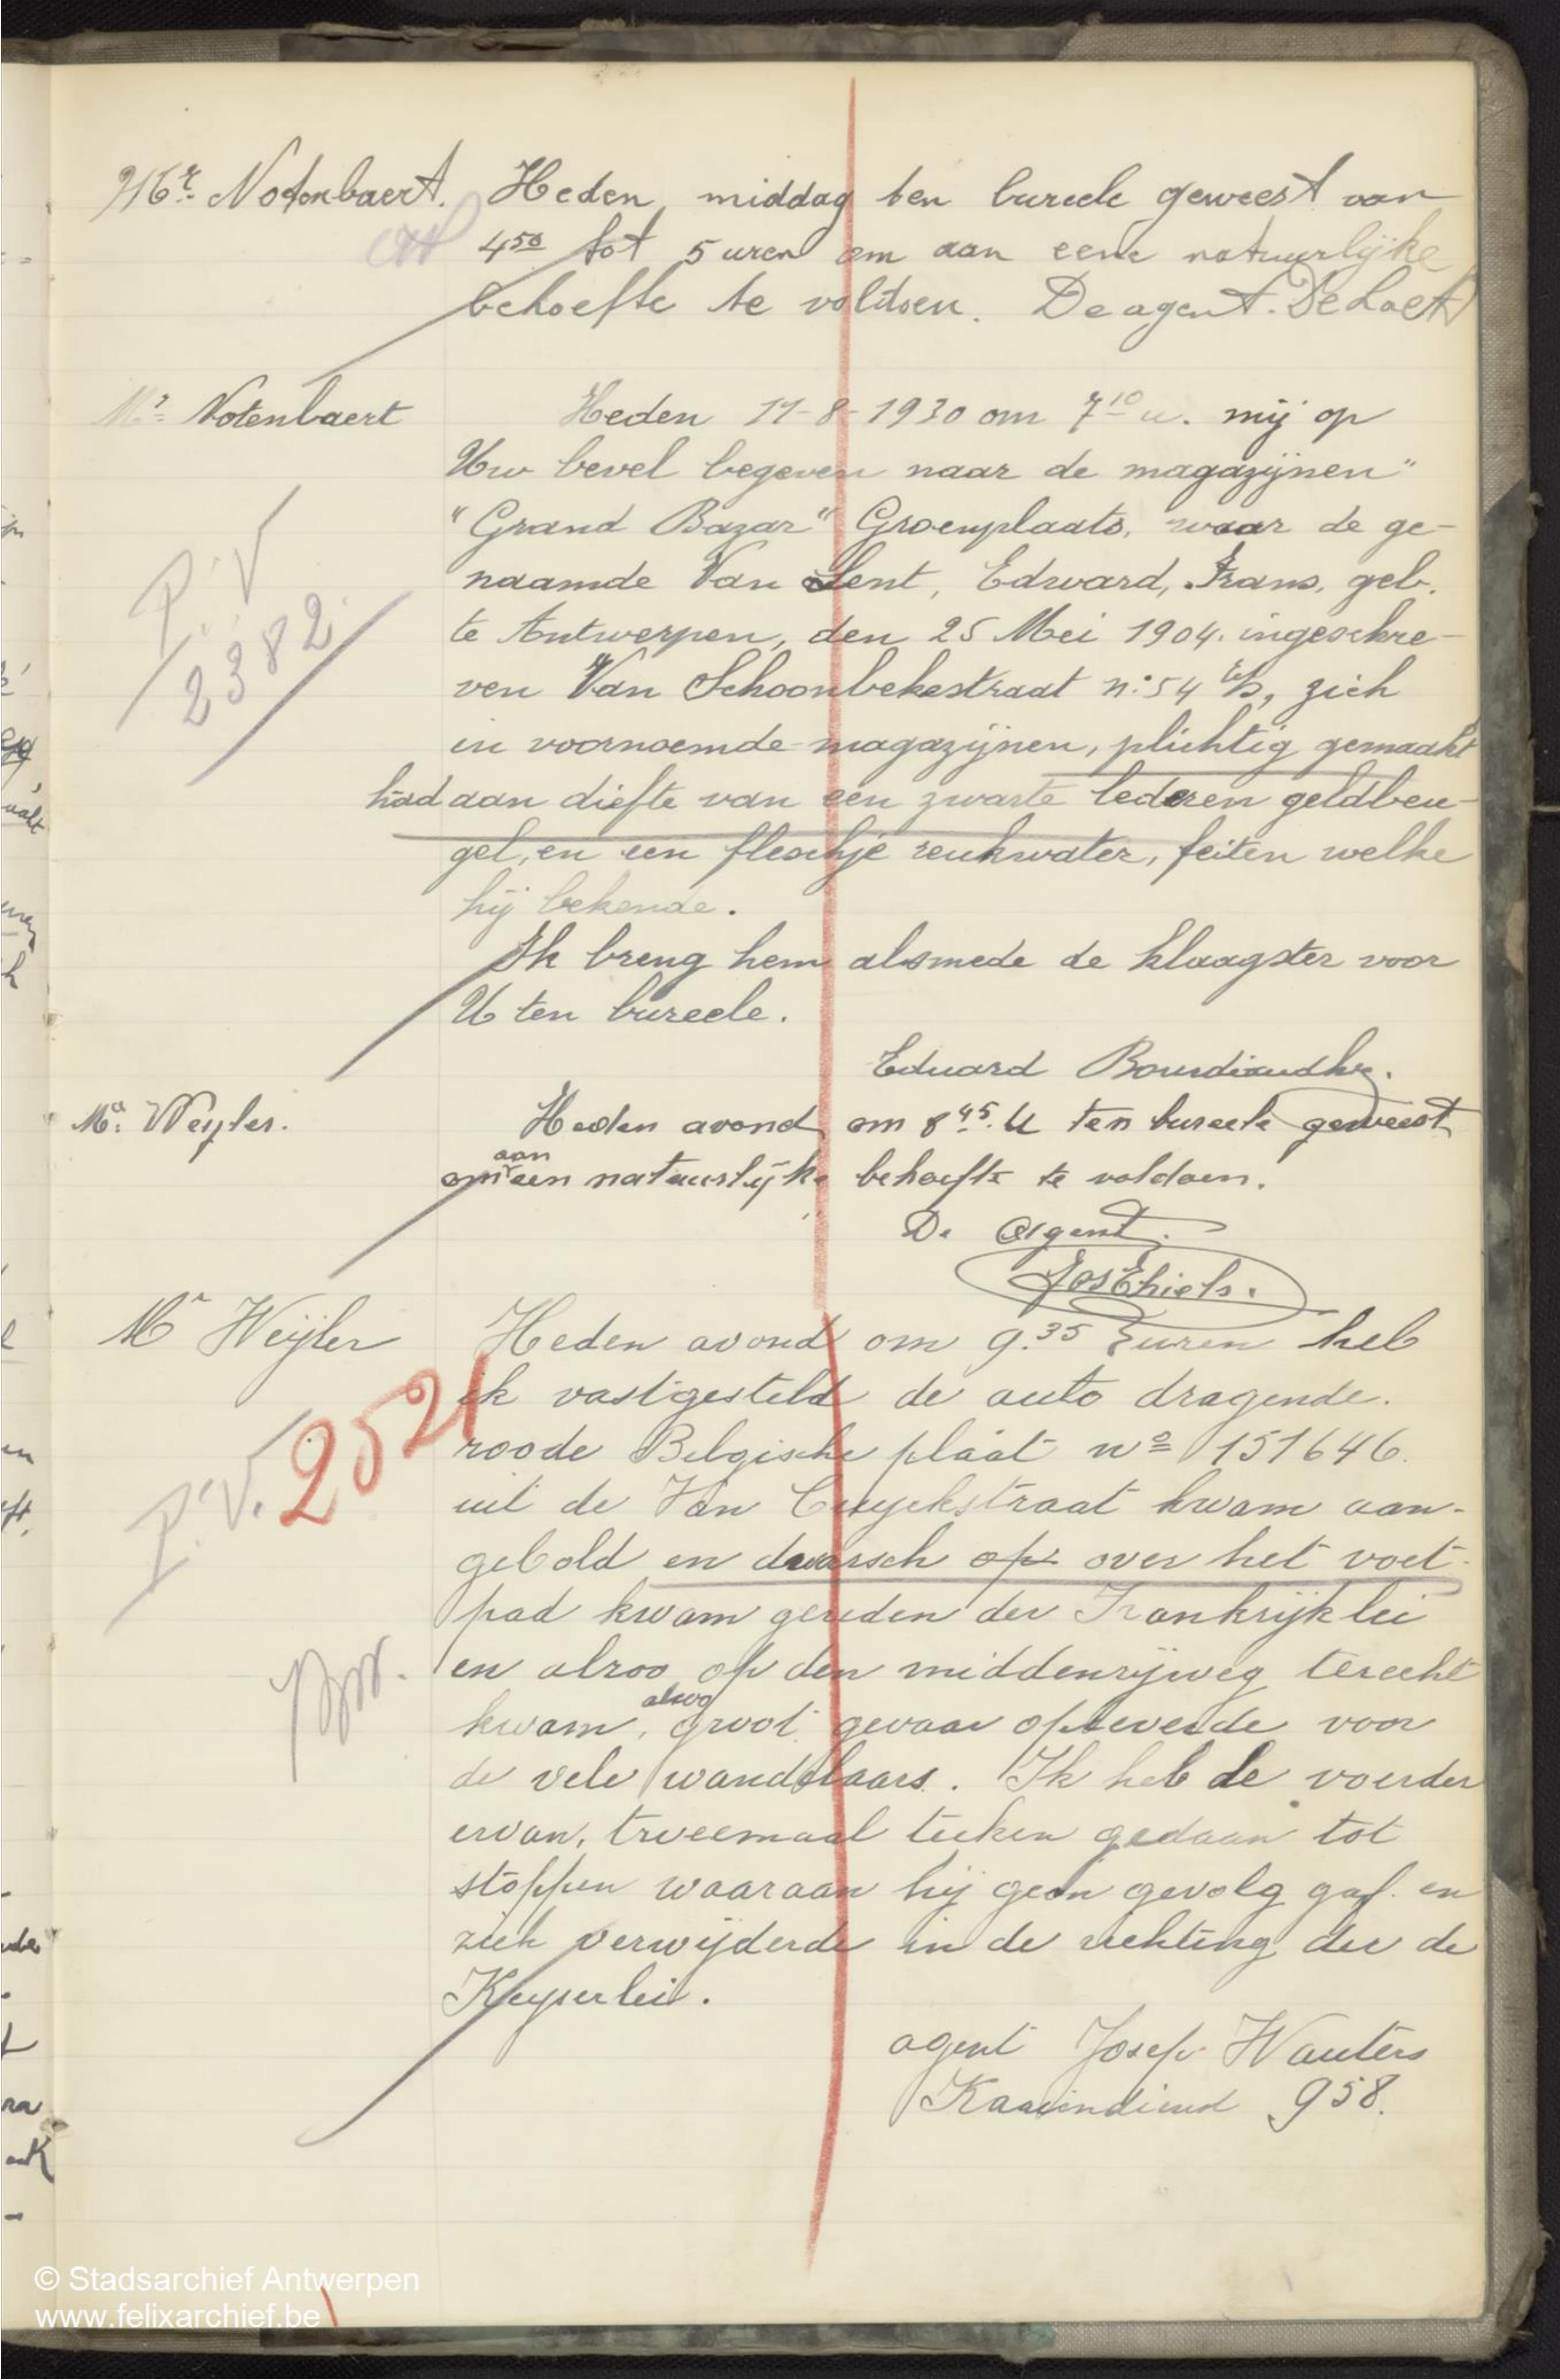 Mr. Notenbaert. Heden middag ten bureele geweest van
4 50 tot 5 uren om aan eene natuurlijke
behoefte te voldoen. De agent. De Laet
Mr. Notenbaert Heden 11-8-1930 om 7 10 u. mij op
Uw bevel begeven naar de magazijnen"
"Grand Bazar" Groenplaats, waar de ge-
naamde Van Lent, Edward, Frans, geb.
te Antwerpen, den 25 Mei 1904. ingeschre-
ven Van Schoonbekestraat n: 54 , zich
in voornoemde magazijnen, plichtig gemaakt
had aan diefte van een zwarte lederen geldbeu-
gel, en een fleschje reukwater, feiten welke
hij bekende.
Ik breng hem alsmede de klaagster voor
U ten bureele.
P.V
2382.
Eduard
Mr. Weyler. Heden avond om 8 45. U ten bureele geweest
om aan een natuurlijke behoefte te voldoen.
De Agent.
Jos Thiels.
Mr Weyler Heden avond om 9.35 uren heb
ik vastgesteld de auto dragende.
roode Belgische plaat no 151646.
uit de Van Cuyckstraat kwam aan-
gebold en dwarsch op over het voet-
pad kwam gereden der Frankrijklei
en alzoo op den middenrijweg terecht
kwam, alwo groot gevaar opleverde voor
de vele wandelaars. Ik heb de voerder
ervan, tweemaal teeken gedaan tot
stoppen waaraan hij geen gevolg gaf. en
zich verwijderde in de richting der de
Keyserlei.
P.V. 2521
agent Josep Wauters
958.
© Stadsarchief Antwerpen
www.felixarchief.be